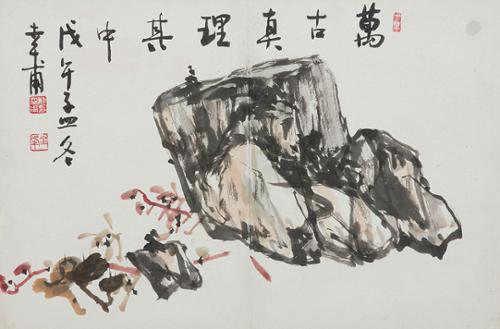 萬古真理其中
戊午孟冬